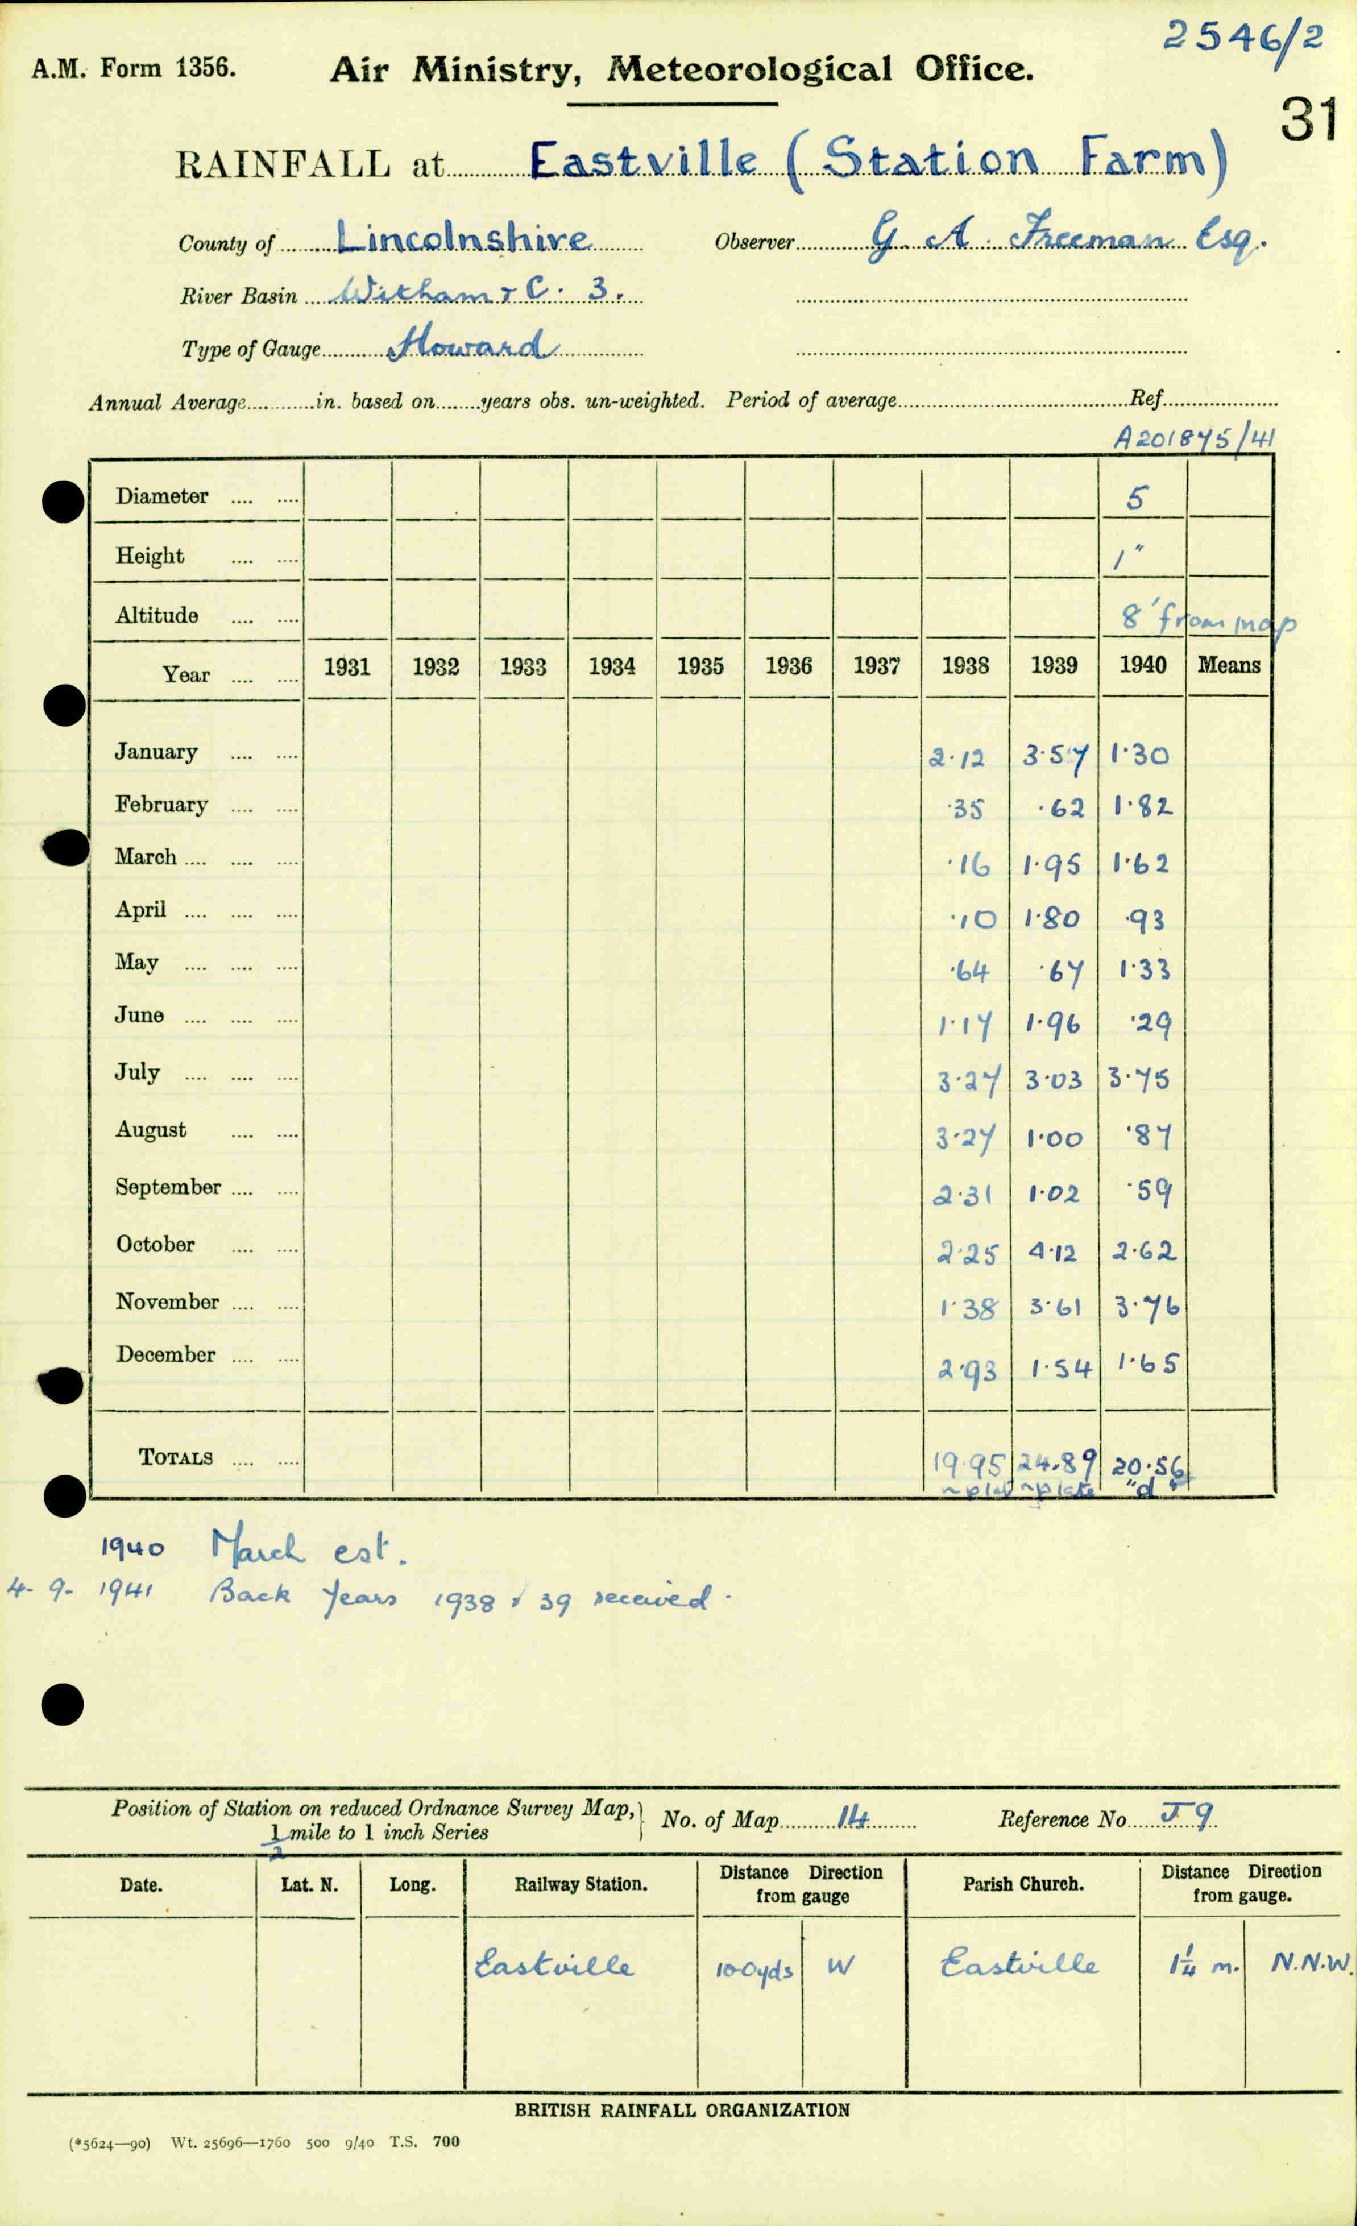 2546/2
A.M. Form 1356. Air Ministry, Meteorological Office.
31
RAINFALL at Eastville (Station Farm)
County of Lincolnshire Observer G. A. Freeman Esq.
River Basin Witham & C. 3.
Type of Gauge Howard
Annual Average in. based on years obs. un-weighted. Period of average Ref.
A201875/41
Diameter 5
Height 1"
Altitude 8' from map
Year 1931 1932 1933 1934 1935 1936 1937 1938 1939 1940 Means
January 2.12 3.57 1.30
February .35 .62 1.82
March .16 1.95 1.62
April .10 1.80 .93
May .64 .67 1.33
June 1.17 1.96 .29
July 3.27 3.03 3.75
August 3.27 1.00 .87
September 2.31 1.02 .59
October 2.25 4.12 2.62
November 1.38 3.61 3.76
December 2.93 1.54 1.65
TOTALS 19.95 24.89 20.56
"d"
1940 March est.
4-9-1941 Back Years 1938 & 39 received.
Position of Station on reduced Ordnance Survey Map, No. of Map 14 Reference No. J 9
1/2 mile to 1 inch Series
Date. Lat. N. Long. Railway Station. Distance Direction from gauge Parish Church. Distance Direction from gauge.
Eastville 100yds W Eastville 1¼ m. N.N.W.
BRITISH RAINFALL ORGANIZATION
(*5624—90) Wt. 25696—1760 500 9/40 T.S. 700